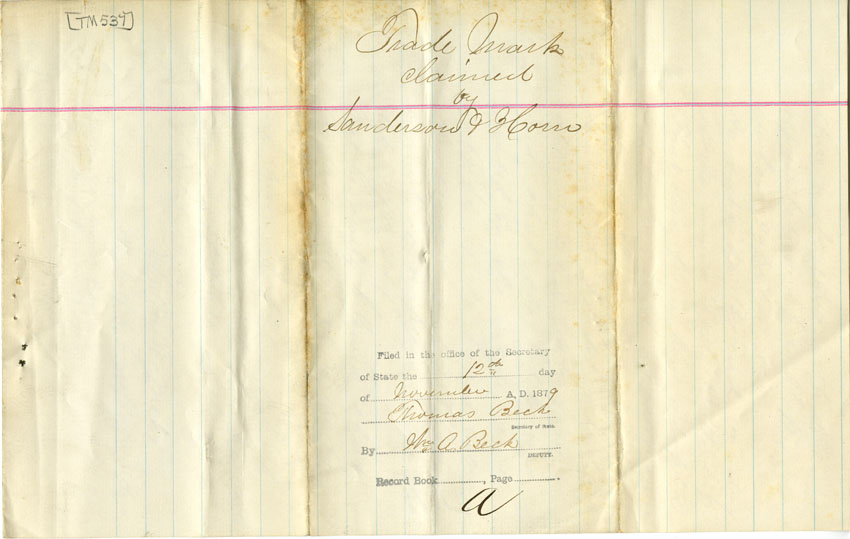 [TM537]
Trade Mark
claimed
by
Sanderson & Horn
Filed in the office of the Secretary
of State the 12th day
of November A, D. 1879
Thomas Beck
Secretary of State.
By Wm A. Beck
DEPUTY.
Record Book, Page.
A